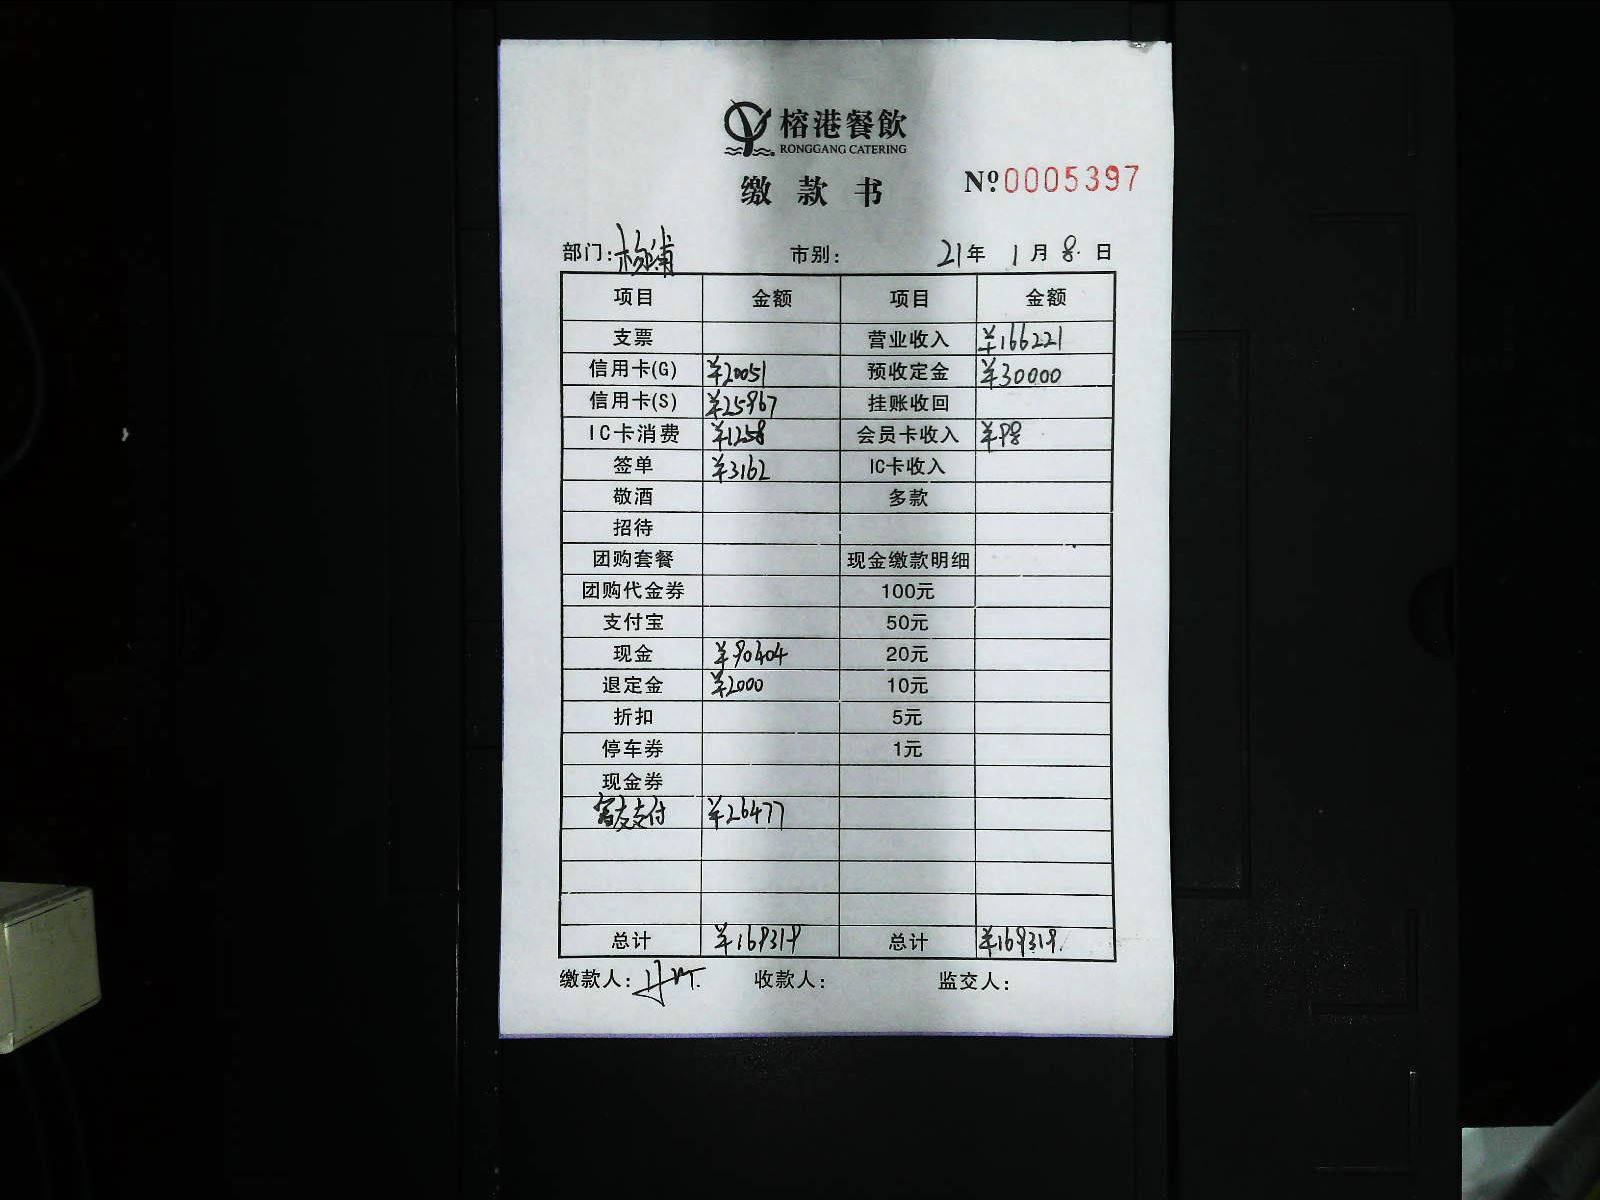 榕港餐飲
RONGGANG CATERING
缴款书 Nº 0005397
部门: 杨浦 市别: 21年 1月 8日
项目 金额 项目 金额
支票 营业收入 ¥166221
信用卡(G) ¥20051 预收定金 ¥30000
信用卡(S) ¥25967 挂账收回
IC卡消费 ¥1258 会员卡收入 ¥98
签单 ¥3162 IC卡收入
敬酒 多款
招待
团购套餐 现金缴款明细
团购代金券 100元
支付宝 50元
现金 ¥90404 20元
退定金 ¥2000 10元
折扣 5元
停车券 1元
现金券
富友支付 ¥26477
总计 ¥169319 总计 ¥169319.
缴款人: 收款人: 监交人: